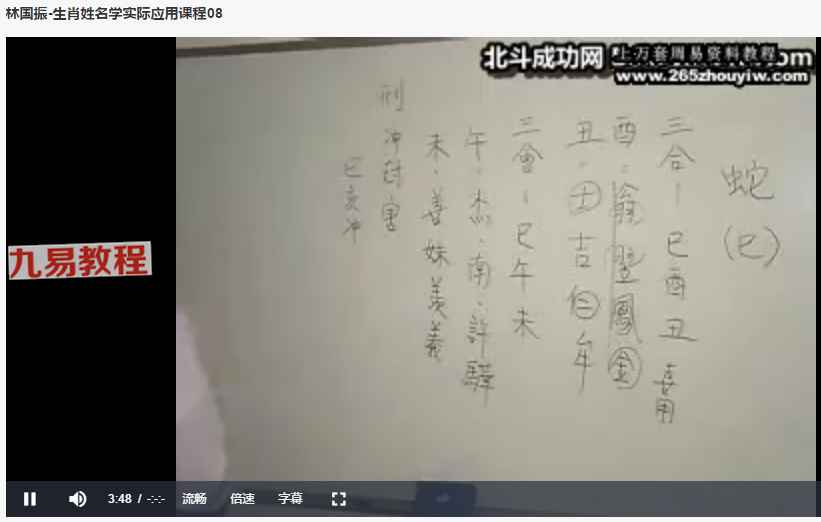 林国振-生肖姓名学实际应用课程08
北斗成功网 上万套周易资料教程
www.265zhouyiw.com
九易教程
蛇(巳)
三合-巳酉丑 喜用
酉:翁 鳳 金
丑:士吉 牟
三會-巳午未
午:杰 南 許 驊
未:善 妹 羨 義
刑冲 害
巳亥冲
3:48 / -:-:- 流畅 倍速 字幕